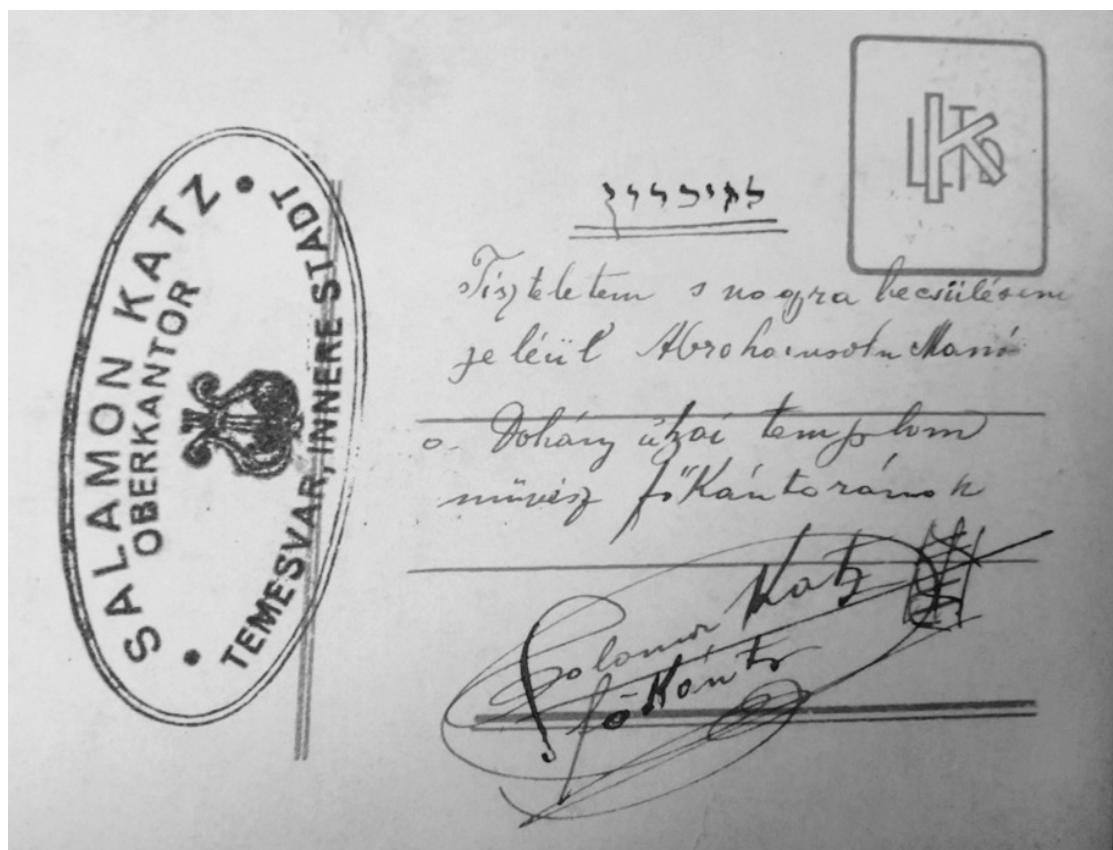 SALAMON KATZ
OBERKANTOR
TEMESVAR, INNERE STADT
לזיכרון
Tiszteletem s nagyra becsülésem
jeléül Abrahamsohn Manó
a Dohány útzai templom
művész főkántorának
Salamon Katz
főkántor